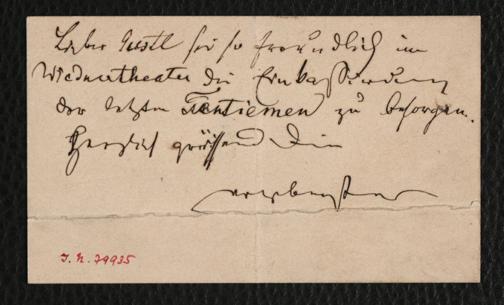 Lieber Gustl sei so freundlich im
Wiednertheater die Einkassierung
der letzten Tantiemen zu besorgen.
Herzlich grüssend Dein
I. N. 79935